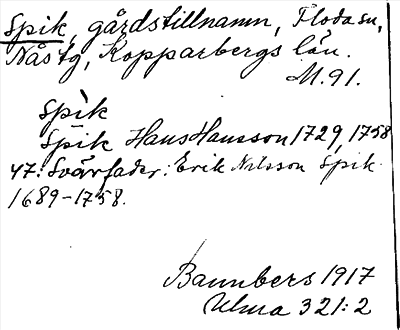 Spik, gårdstillnamn, Floda sn,
Nås tg, Kopparbergs län.
M.91.
Spìk
Spik Hans Hansson 1729, 1758
47: Svärfader: Erik Nilsson Spik.
1689-1758.
Bannbers 1917
Ulma 321:2